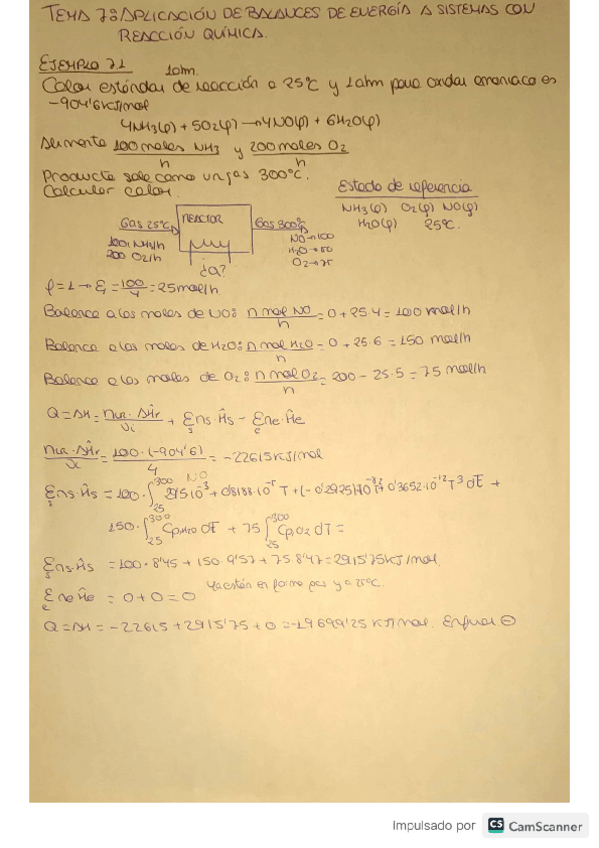 TEMA 7: APLICACIÓN DE BALANCES DE ENERGÍA A SISTEMAS CON
REACCIÓN QUÍMICA.
EJEMPLO 7.1
1 atm.
Calor estándar de reacción a 25ºC y 1 atm para oxidar amoniaco es
-904'6 KJ/mol
4NH3(g) + 5O2(g) → 4NO(g) + 6H2O(g)
Alimenta 100 moles NH3/h y 200 moles O2/h
Producto sale como un gas 300ºC.
Calcular calor.
Estado de referencia
NH3(g) O2(g) NO(g)
H2O(g) 25ºC.
Gas 25ºC
REACTOR
Gas 300ºC
100 NH3/h
200 O2/h
NO→100
H2O→150
O2→75
¿Q?
f=1 → ξ = 100/4 = 25 mol/h
Balance a los moles de NO: n mol NO/h = 0 + 25·4 = 100 mol/h
Balance a los moles de H2O: n mol H2O/h = 0 + 25·6 = 150 mol/h
Balance a los moles de O2: n mol O2/h = 200 - 25·5 = 75 mol/h
Q = ΔH = nur·ΔĤr/νi + Σns·Ĥs - Σne·Ĥe
nur·ΔĤr/νi = 100·(-904'6)/4 = -22615 KJ/mol
NO
Σns·Ĥs = 100·∫25 300 29'5·10^-3 + 0'8188·10^-5 T + (-0'2925)·10^-8 T^2 + 0'3652·10^-12 T^3 dT +
150·∫25 300 Cp,H2O dT + 75 ∫25 300 Cp,O2 dT =
Σns·Ĥs = 100·8'45 + 150·9'57 + 75·8'47 = 2915'75 KJ/mol.
Σne·Ĥe = 0+0 = 0 Ya están en forma gas y a 25ºC.
Q = ΔH = -22615 + 2915'75 + 0 = -19699'25 KJ/mol. Enfriar ⊖
Impulsado por CS CamScanner